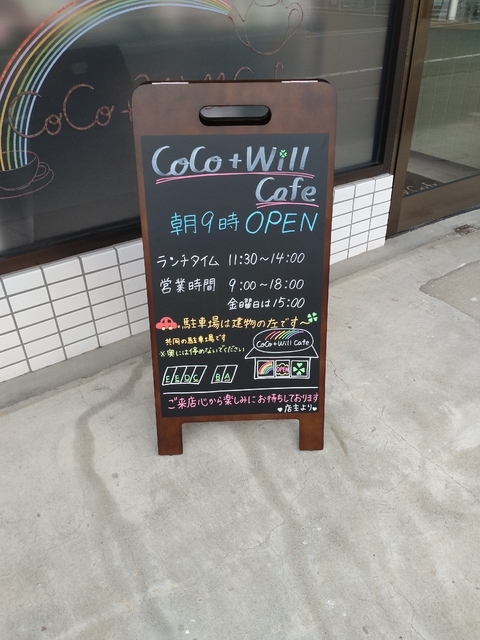 CoCo+Will
Cafe
朝9時 OPEN
ランチタイム 11:30～14:00
営業時間 9:00～18:00
金曜日は15:00
駐車場は建物の左です～
共同の駐車場です
※奥には停めないでください
CoCo+Will Cafe
OPEN
E E D C B A
ご来店心から楽しみにお待ちしております
♥店主より♥